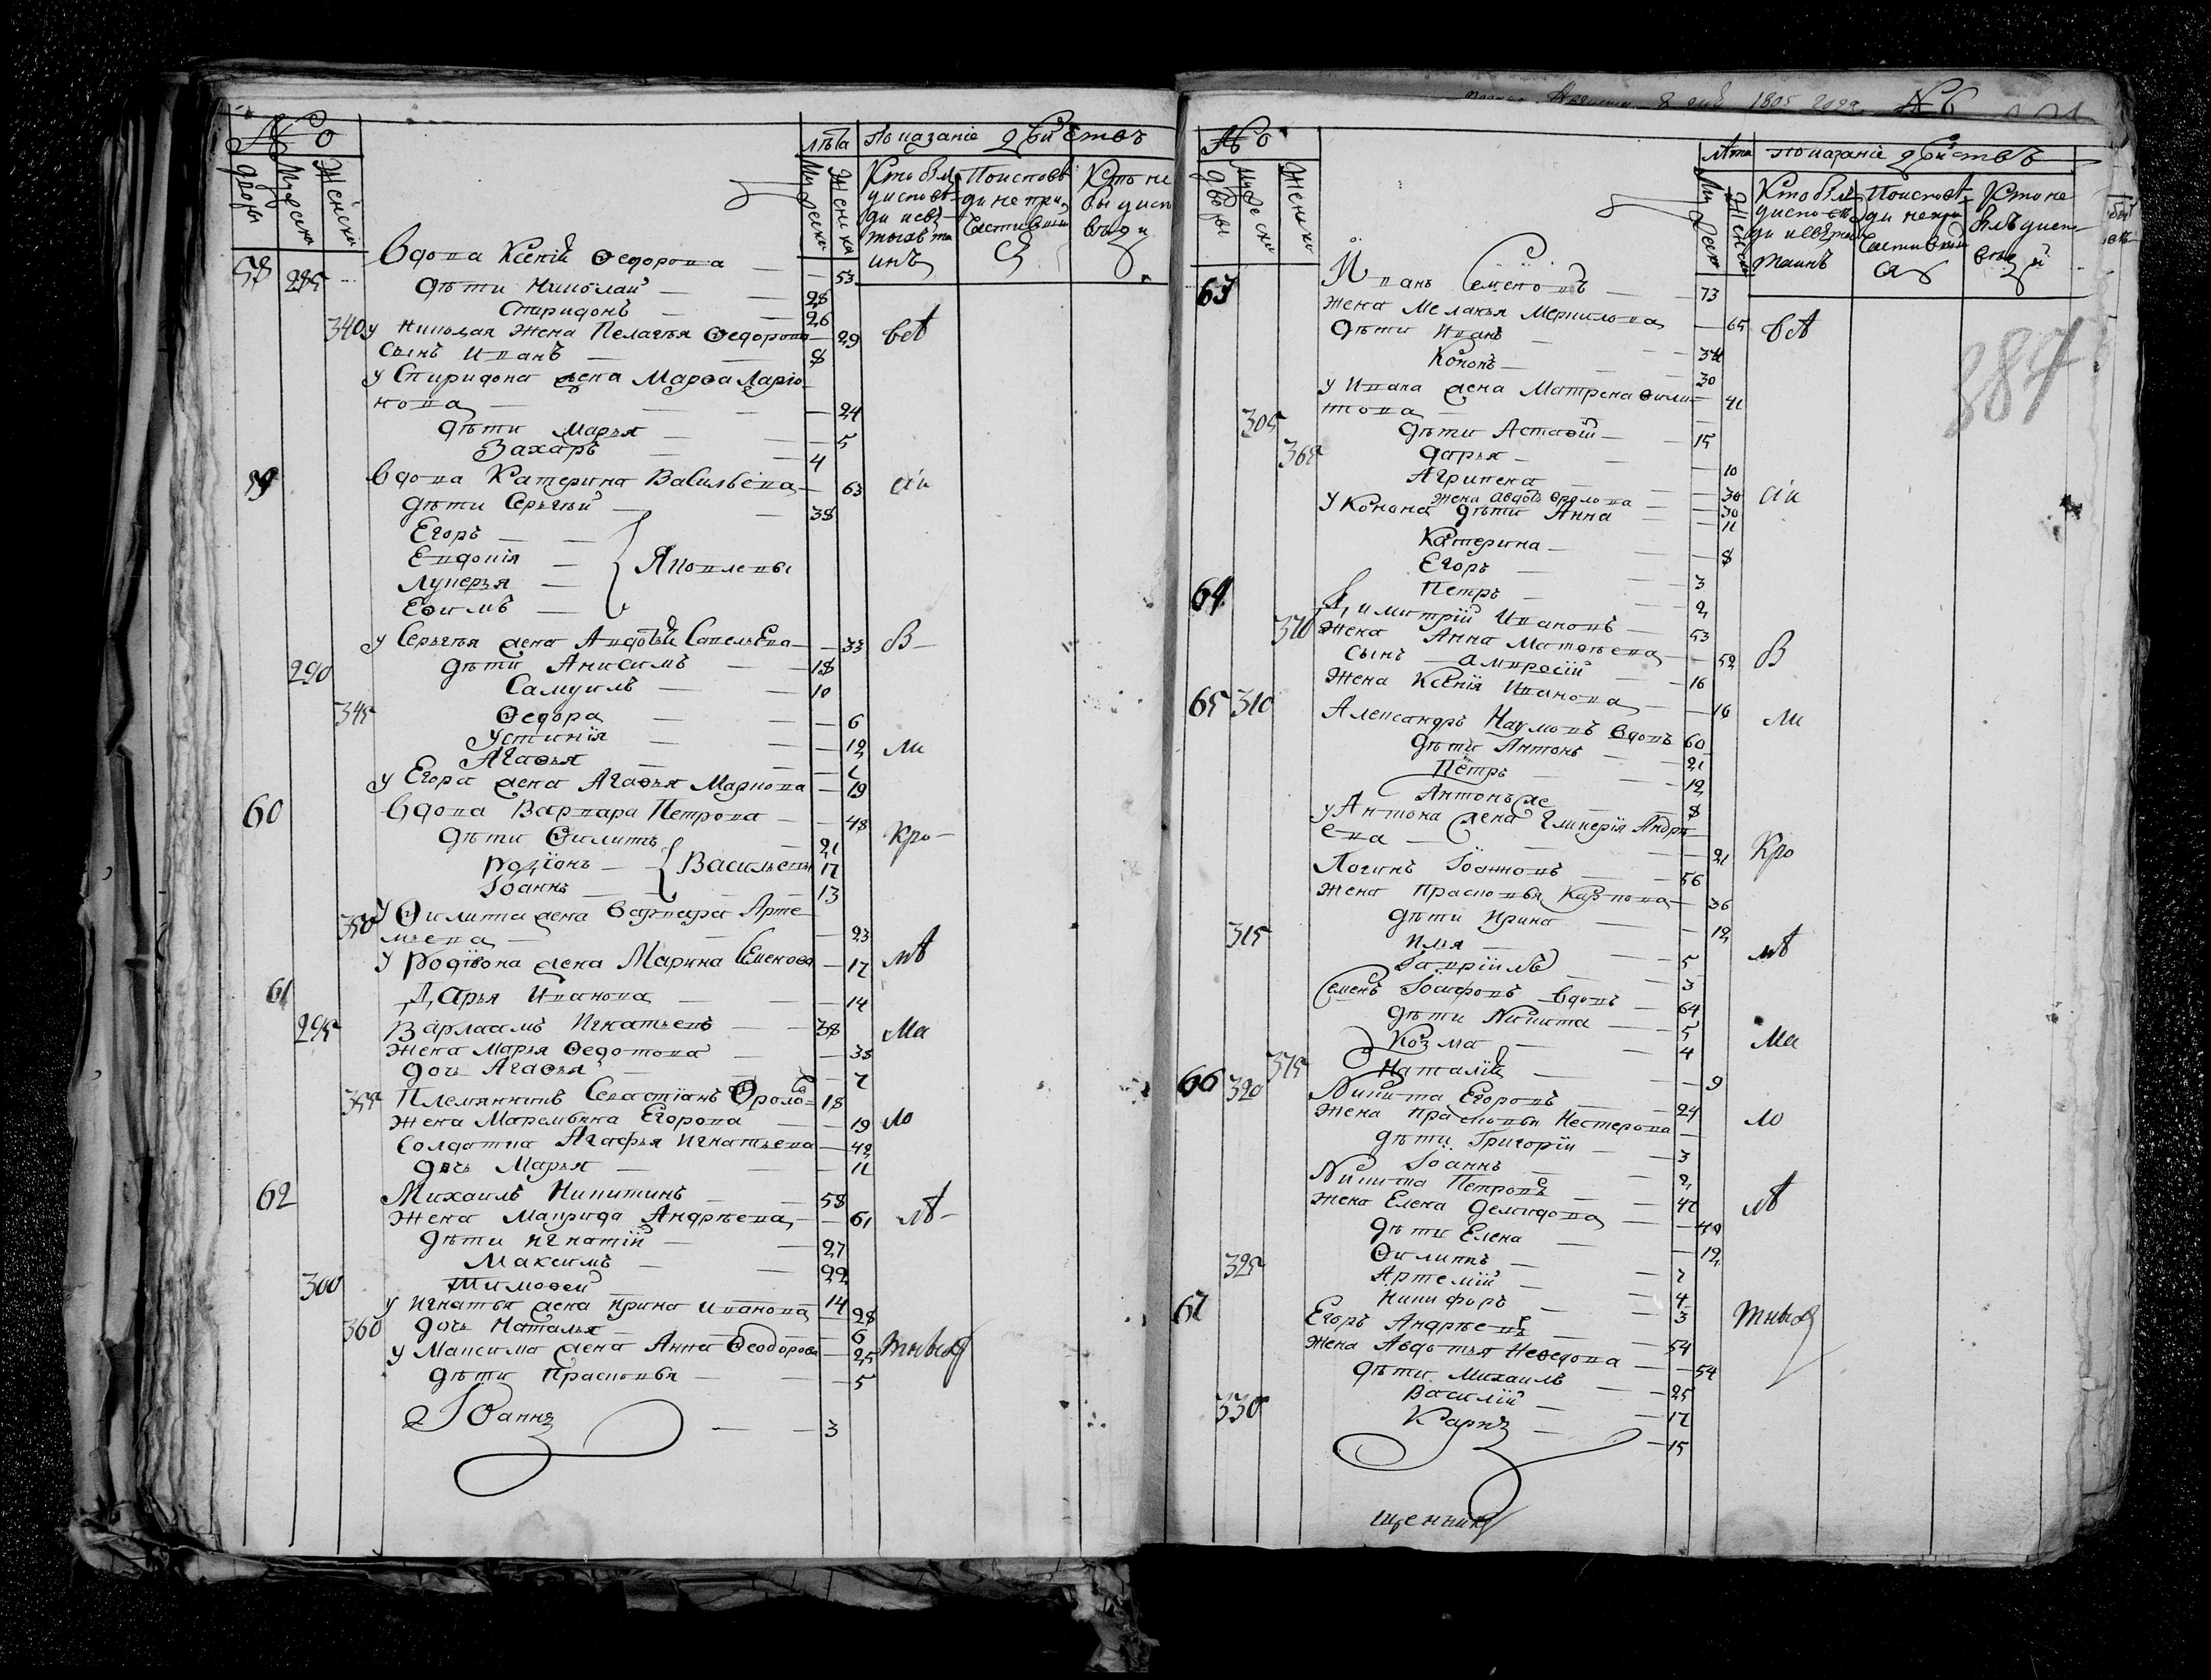 №
лѣта Показанiе дѣйствъ
дворы Мужеска Женска
Мужеска Женска
Кто был у исповѣди и свѣтыхъ таинъ
По исповѣди не причастивший ся
Кто не былъ у исповѣди
58 285 Вдова Ксенiй Ѳедорова — 53
дѣти Николай — 28
Спиридонъ — 26
340 у Николая жена Пелагѣя Ѳедорова — 29 всѣ
сынъ Иванъ — 8
у Спиридона жена Марѳа Ларiо
нова — 24
дѣти Марья — 5
Захаръ — 4
59 Вдова Катерина Васильева — 63 сiи
дѣти Серьгѣй — 38
Егоръ —
Евдокiя — Яковлевы
Лукерья —
Еѳимъ —
у Серьгѣя жена Авдотьй Савельева — 33 в—
290 дѣти Анисимъ — 18
Самуилъ — 10
345 Ѳедора — 6
Устинiя — 12 ли
Агаѳья —
у Егора жена Агаѳья Маркова — 19
60 Вдова Варвара Петрова — 48 кро—
дѣти Ѳилипъ 21
Родiонъ — Васильевы 17
Iоаннъ — 13
350 у Ѳилипа жена Варвара Арте
мьева — 23
у Родiвона жена Марина Семенова — 17 мѣ
61 Дарья Иванова — 14
295 Варлаамъ Игнатьевъ — 38 Ма
жена Марья Ѳедотова — 38
дочь Агаѳья — 7
355 Племянникъ Севастiанъ Ѳроло 18
жена Маремьяна Егорова — 19 ло
Солдатка Агафья Игнатьева — 42
дочь Марья — 11
62 Михаилъ Никитинъ — 58
жена Маврида Андрѣева — 61 лѣ—
дѣти Игнатiй — 27
Максимъ — 22
300 Тимоѳей — 14
у Игнатья жена Ирина Иванова — 28
360 дочь Наталья — 6
у Максима жена Анна Ѳеодорова — 25 тныхъ
дѣти Прасковья — 5
Iоаннъ — 3
1805 года
№
лѣта Показанiе дѣйствъ
дворы Мужески Женски
Мужеск Женска
Кто был у исповѣди и свѣтыхъ таинъ
По исповѣди не причастивший ся
Кто не былъ у исповѣди
387
63 Иванъ Семеновъ — 73
жена Меланья Меркилова — 65 всѣ
дѣти Иванъ —
Кононъ — 30
у Ивана жена Матрена Ѳили— 41
пова —
305 дѣти Астаѳiй — 15
365 Дарья — 10
Агрипена — сiи
жена Авдотья Ѳролова — 30
у Конона дѣти Анна — 11
Катерина — 8
Егоръ — 3
Петръ — 2
64 Димитрiй Ивановъ — 53
370 жена Анна Матвѣева — 52 в
сынъ Амвросiй — 16
жена Ксенiя Иванова — 16 ли
65 310 Александръ Наумовъ вдовъ 60
дѣти Антонъ — 21
Петръ — 12
Антонъ же — 8
у Антона жена Гликерiя Андрѣ
ева — 21 Кро
Логинъ Iоанновъ — 56
жена Прасковья Карпова — 36
дѣти Ирина — 12
315 Илья — 5 мѣ
Гаврiилъ — 3
Семенъ вдовъ — 64
дѣти Никита — 5
Козма — 4 Ма
375 Наталiй — 9
66 320 Никита Егоровъ — 24
жена Прасковья Нестерова — ло
дѣти Григорiй — 3
Iоаннъ — 2
Никита Петровъ — 42
жена Елена Демидова — лѣ
дѣти Елена — 12
Ѳилипъ — 7
325 Артемiй — 4
Никифоръ — 3
67 Егоръ Андрѣевъ — 54 тныхъ
жена Авдотья Неѳедова — 54
дѣти Михаилъ — 25
Василiй — 17
330 Карпъ — 15
щенникъ